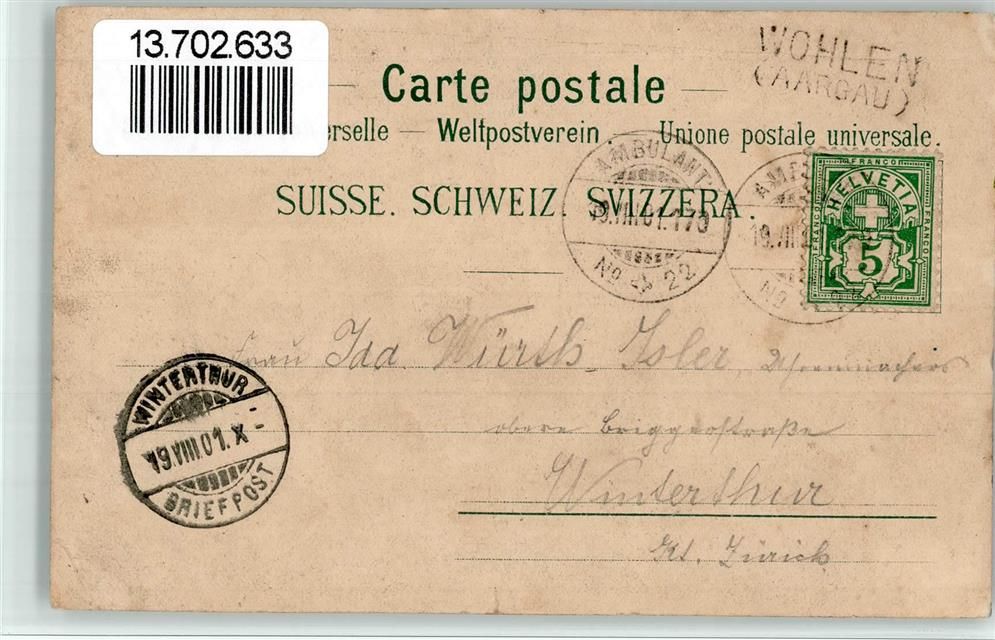 13.702.633
WOHLEN
(AARGAU)
Carte postale
erselle — Weltpostverein. Unione postale universale.
SUISSE. SCHWEIZ. SVIZZERA.
AMBULANT
19.VIII.01.
No 22
19.VIII
No
FRANCO
HELVETIA
FRANCO
FRANCO
5
Frau Ida Würth-Isler, Uhrenmachers
obere Briggerstraße
Winterthur
Kt. Zürich
WINTERTHUR
19.VIII.01.X-
BRIEFPOST